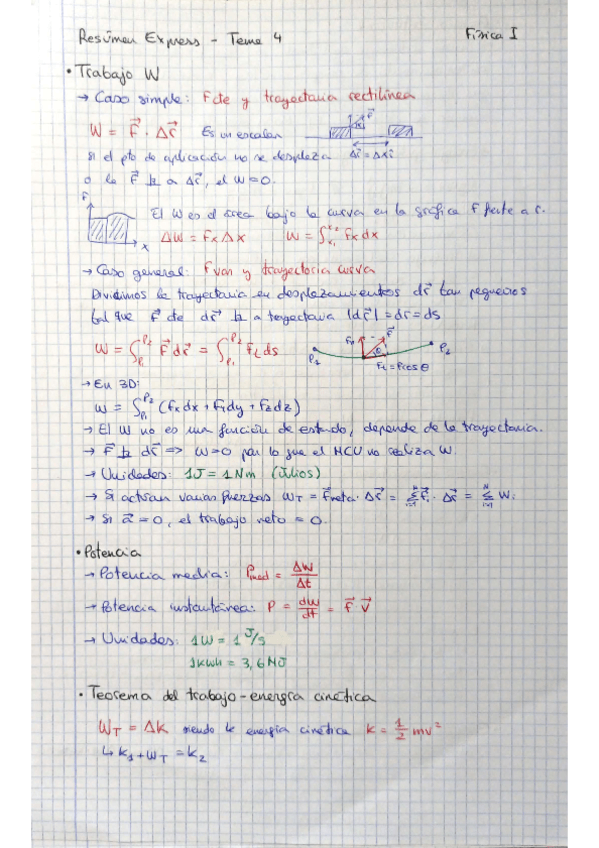 Resúmen Express - Tema 4 Física I
• Trabajo W
→ Caso simple: F cte y trayectoria rectilínea
W = F⃗ · Δr⃗ Es un escalar
F⃗
Δr⃗ = Δxî
si el pto de aplicación no se desplaza
o la F⃗ ⊥ a Δr⃗, el W=0.
F
x
El W es el área bajo la curva en la gráfica F frente a r.
ΔW = Fx Δx W = ∫_{x₁}^{x₂} Fx dx
→ Caso general: F van y trayectoria curva
Dividimos la trayectoria en desplazamientos dr⃗ tan pequeños
tal que F⃗ cte dr⃗ ∥ a trayectoria |dr⃗| = dr = ds
W = ∫_{P₁}^{P₂} F⃗ dr⃗ = ∫_{P₁}^{P₂} Ft ds
P₁ Fn F⃗ θ P₂
Ft = Fcosθ
→ En 3D:
W = ∫_{P₁}^{P₂} (Fx dx + Fy dy + Fz dz)
→ El W no es una función de estado, depende de la trayectoria.
→ F⃗ ⊥ dr⃗ => W=0 por lo que el MCU no realiza W.
→ Unidades: 1J = 1Nm (Julios)
→ Si actúan varias fuerzas W_T = F⃗neta · Δr⃗ = Σ_{i=1}^{N} F⃗i · Δr⃗ = Σ_{i=1}^{N} Wi
→ Si a⃗ = 0, el trabajo neto = 0.
• Potencia
→ Potencia media: Pmed = ΔW/Δt
→ Potencia instantánea: P = dW/dt = F⃗ V⃗
→ Unidades: 1W = 1 J/s
1kWh = 3,6 MJ
• Teorema del trabajo-energía cinética
W_T = Δk siendo la energía cinética k = 1/2 mv²
↳ k₁ + W_T = k₂